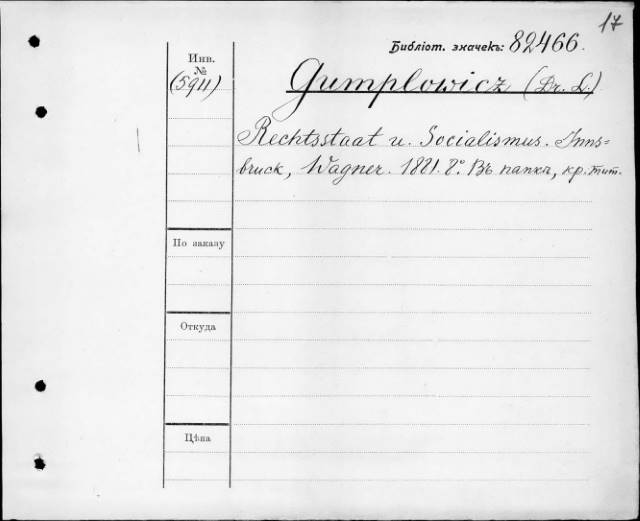 17
Библіот. значекъ: 82466.
Инв.
№
(5911)
Gumplowicz (Dr. L.)
Rechtsstaat u. Socialismus. Inns=
bruck, Wagner. 1881. 8°. Въ папкѣ, кр. тит.
По заказу
Откуда
Цѣна